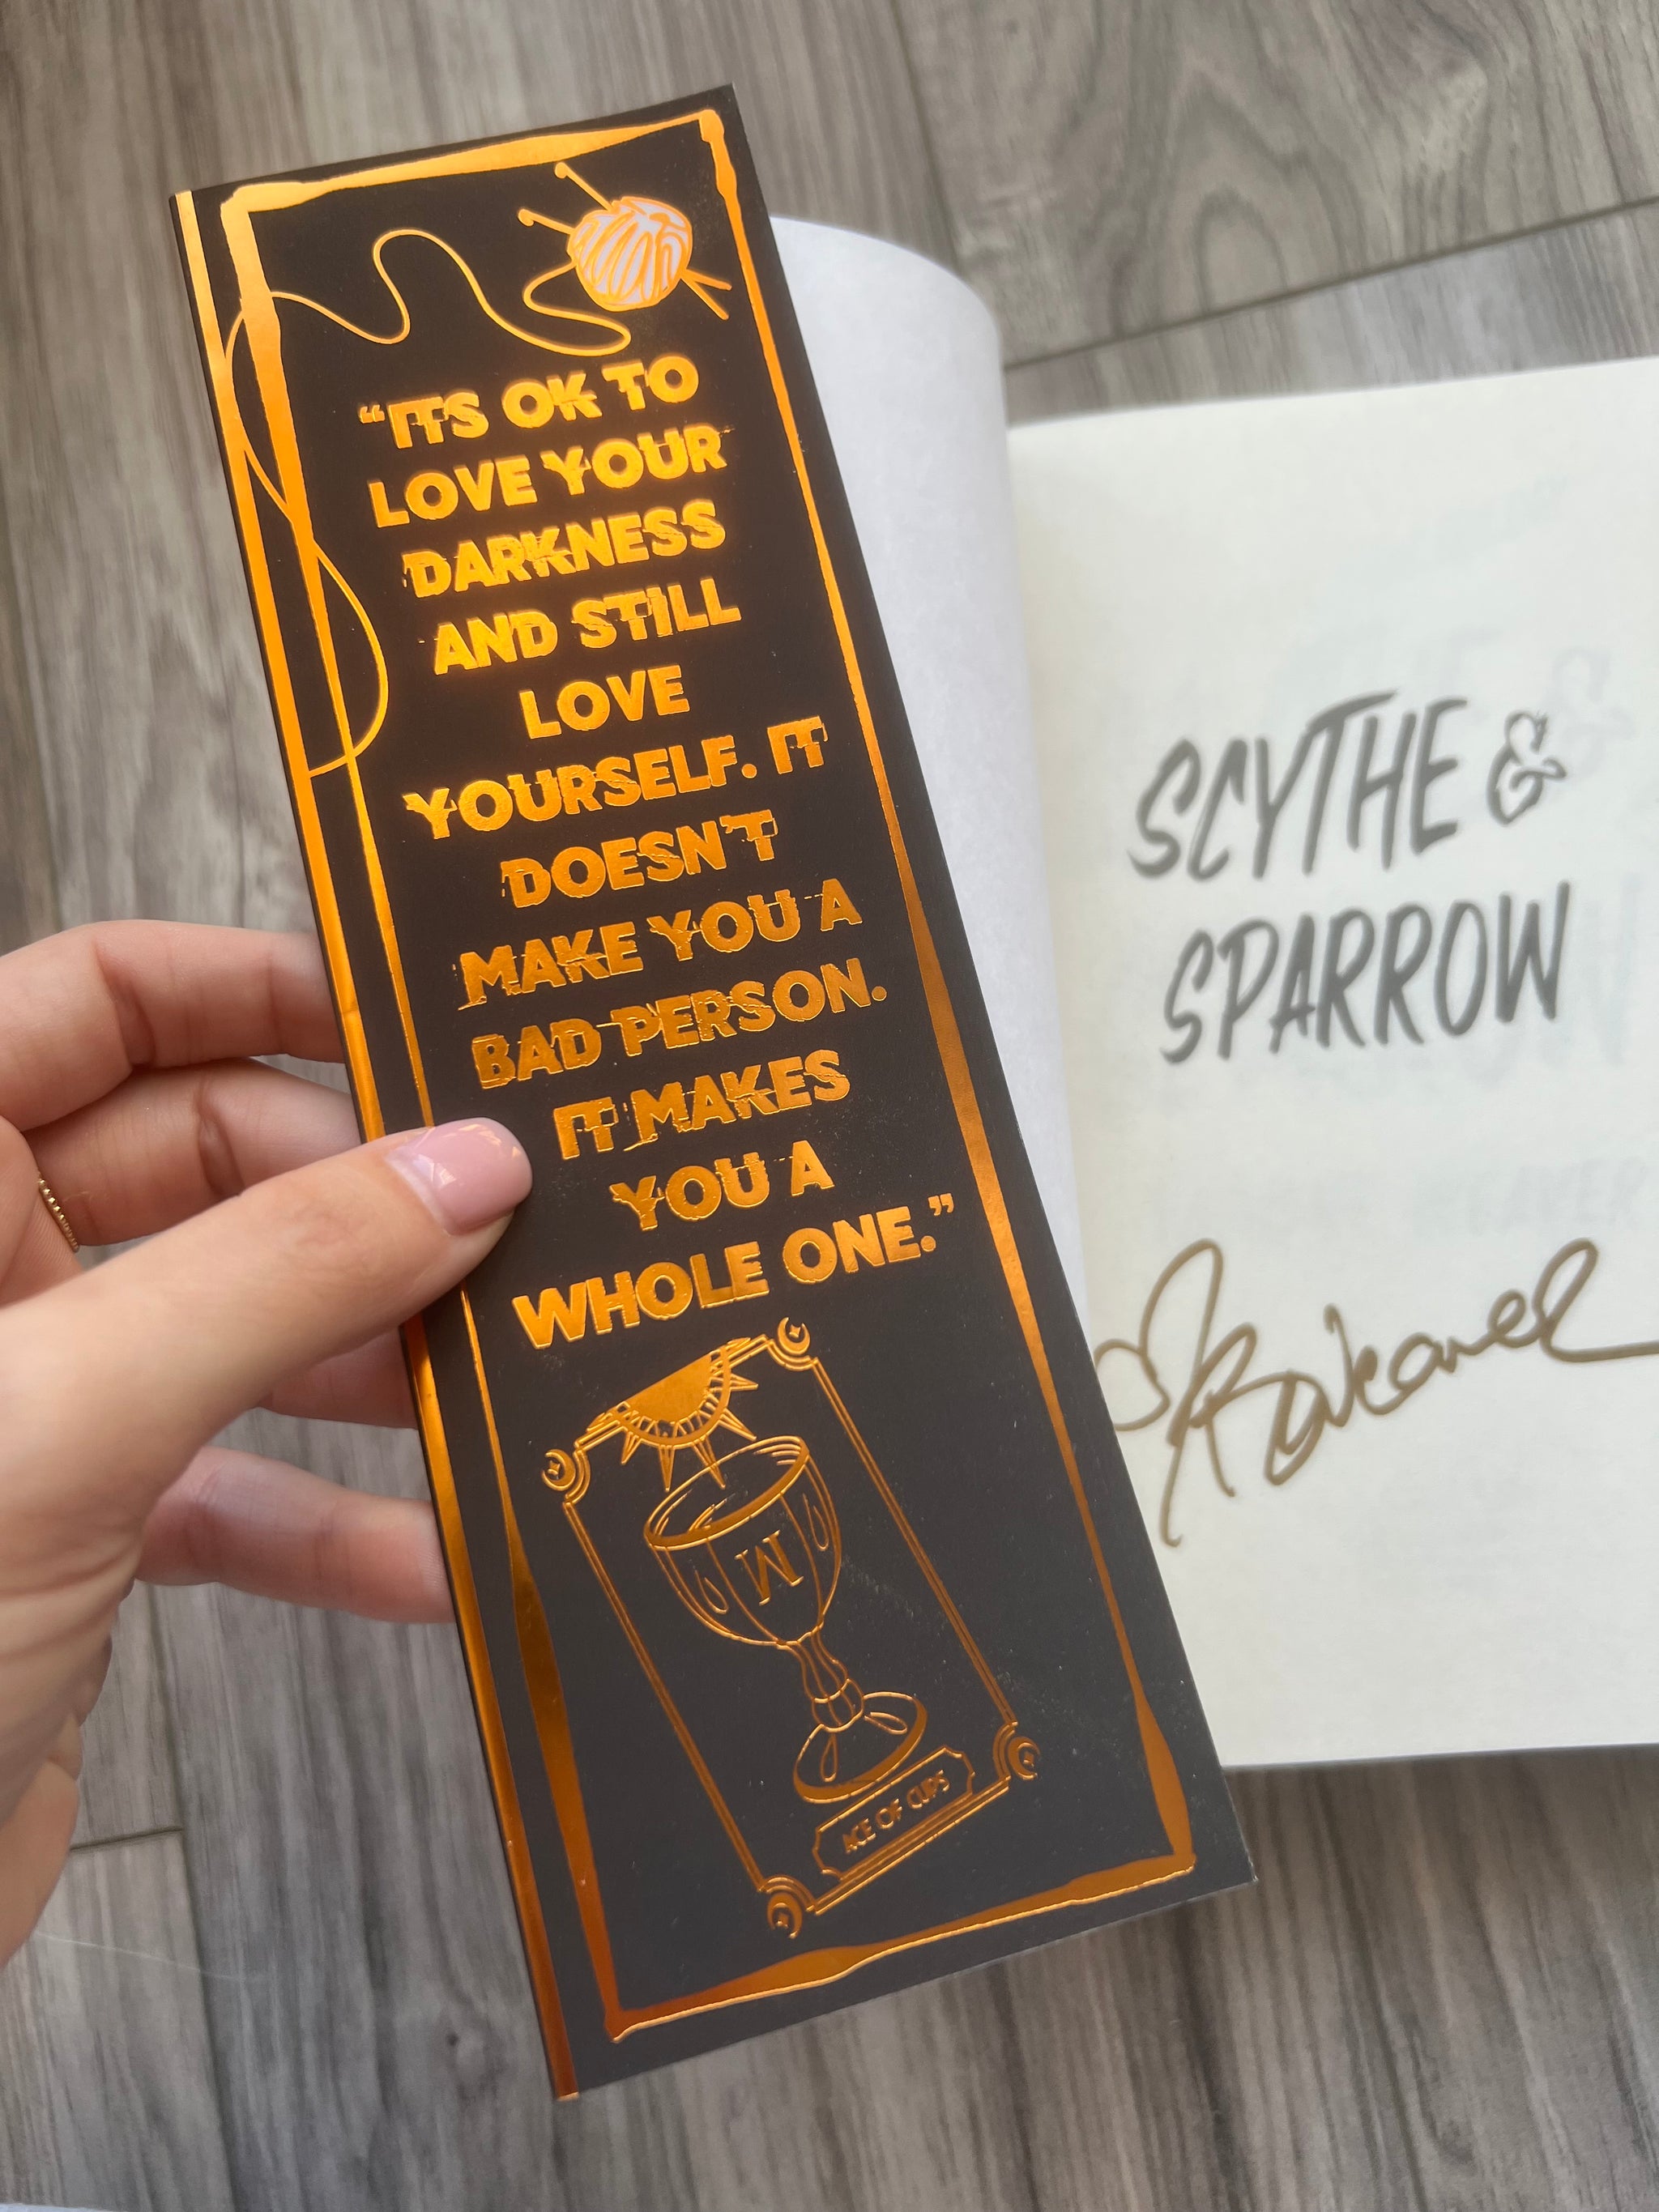 “ITS OK TO
LOVE YOUR
DARKNESS
AND STILL
LOVE
YOURSELF. IT
DOESN'T
MAKE YOU A
BAD PERSON.
IT MAKES
YOU A
WHOLE ONE.”
M
ACE OF CUPS
SCYTHE &
SPARROW